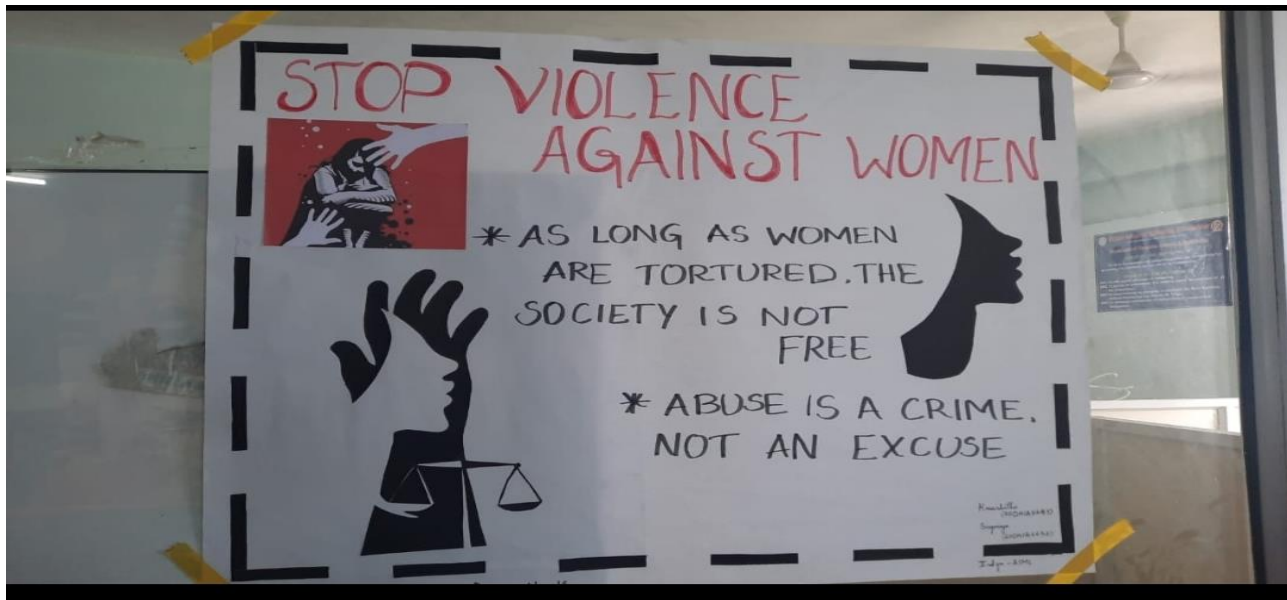 STOP VIOLENCE
AGAINST WOMEN
* AS LONG AS WOMEN
ARE TORTURED. THE
SOCIETY IS NOT
FREE
* ABUSE IS A CRIME.
NOT AN EXCUSE